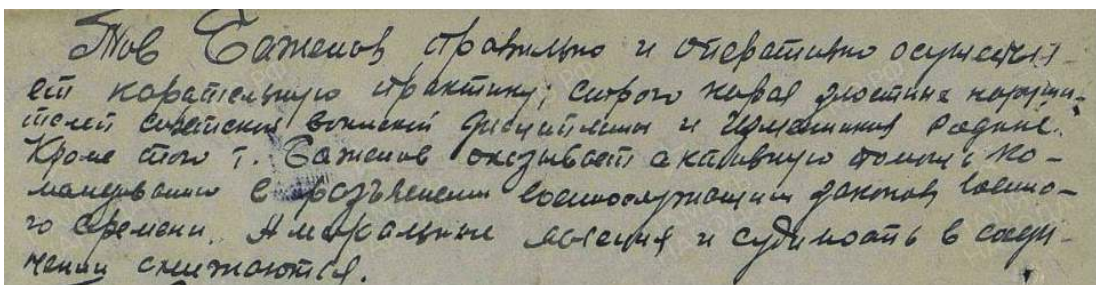 Тов Баженов правильно и оперативно осуществля-
ет карательную практику, строго карая злостных наруши-
телей советской воинской дисциплины и изменников Родине.
Кроме того т. Баженов оказывает активную помощь ко-
мандованию в разъяснении военнослужащим законов военно-
го времени. Аморальные явления и судимость в соеди-
нении снижаются.